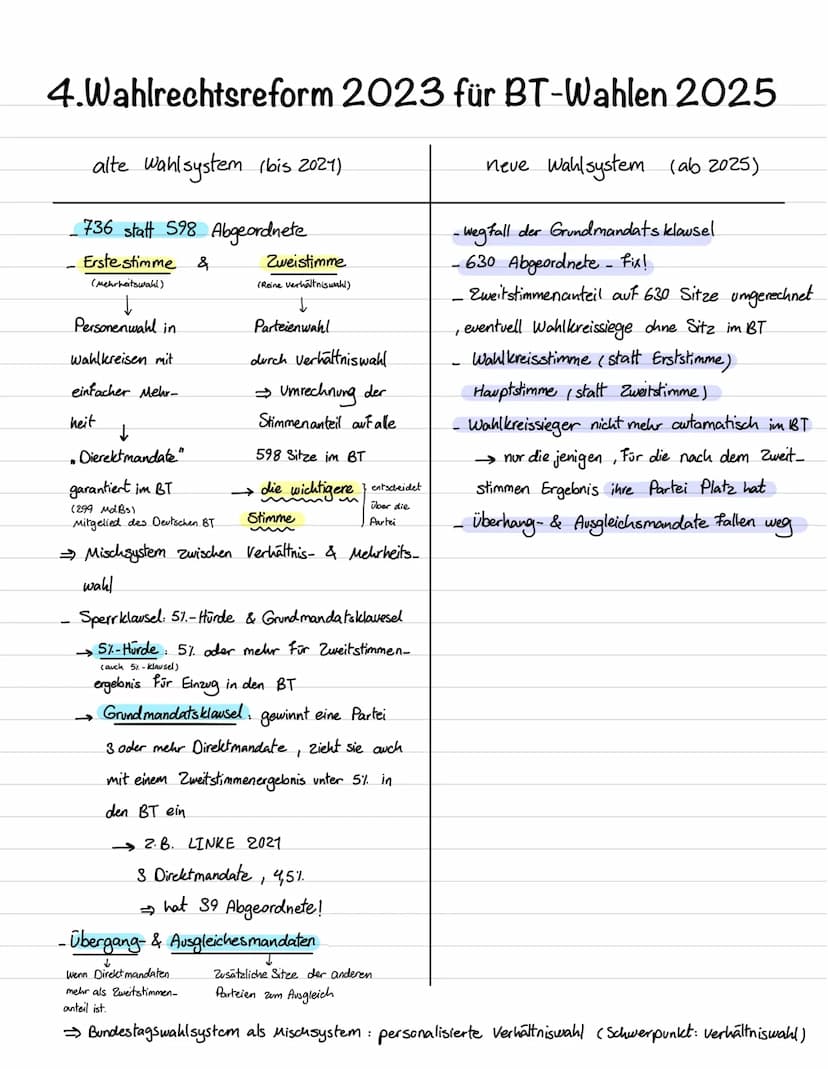 4.Wahlrechtsreform 2023 für BT-Wahlen 2025
alte Wahlsystem (bis 2021)
- 736 statt 598 Abgeordnete
- Erstestimme & Zweistimme
(Mehrheitswahl) (Reine Verhältniswahl)
↓ ↓
Personenwahl in Parteienwahl
Wahlkreisen mit durch Verhältniswahl
einfacher Mehr- ⇒ Umrechnung der
heit ↓ Stimmenanteil auf alle
"Dierektmandate" 598 Sitze im BT
garantiert im BT → die wichtigere } entscheidet
(299 MdBs) über die
Mitgelied des Deutschen BT Stimme Partei
⇒ Mischsystem zwischen Verhältnis- & Mehrheits-
wahl
- Sperrklausel: 5%-Hürde & Grundmandatsklauesel
→ 5%-Hürde: 5% oder mehr für Zweitstimmen-
(auch 5%-klausel)
ergebnis für Einzug in den BT
→ Grundmandatsklausel: gewinnt eine Partei
3 oder mehr Direktmandate, zieht sie auch
mit einem Zweitstimmenergebnis unter 5% in
den BT ein
→ z.B. LINKE 2021
3 Direktmandate, 4,5%
⇒ hat 39 Abgeordnete!
- Übergang- & Ausgleichesmandaten
↓ ↓
wenn Direktmandaten Zusätzliche Sitze der anderen
mehr als Zweitstimmen- Parteien zum Ausgleich
anteil ist.
⇒ Bundestagswahlsystem als Mischsystem: personalisierte Verhältniswahl (Schwerpunkt: Verhältniswahl)
neue Wahlsystem (ab 2025)
- wegfall der Grundmandatsklausel
- 630 Abgeordnete - Fix!
- Zweitstimmenanteil auf 630 Sitze umgerechnet
, eventuell Wahlkreissiege ohne Sitz im BT
- Wahlkreisstimme (statt Erststimme)
Hauptstimme (statt Zweitstimme)
- Wahlkreissieger nicht mehr automatisch im BT
→ nur die jenigen, für die nach dem Zweit-
stimmen Ergebnis ihre Partei Platz hat
- Überhang- & Ausgleichsmandate fallen weg